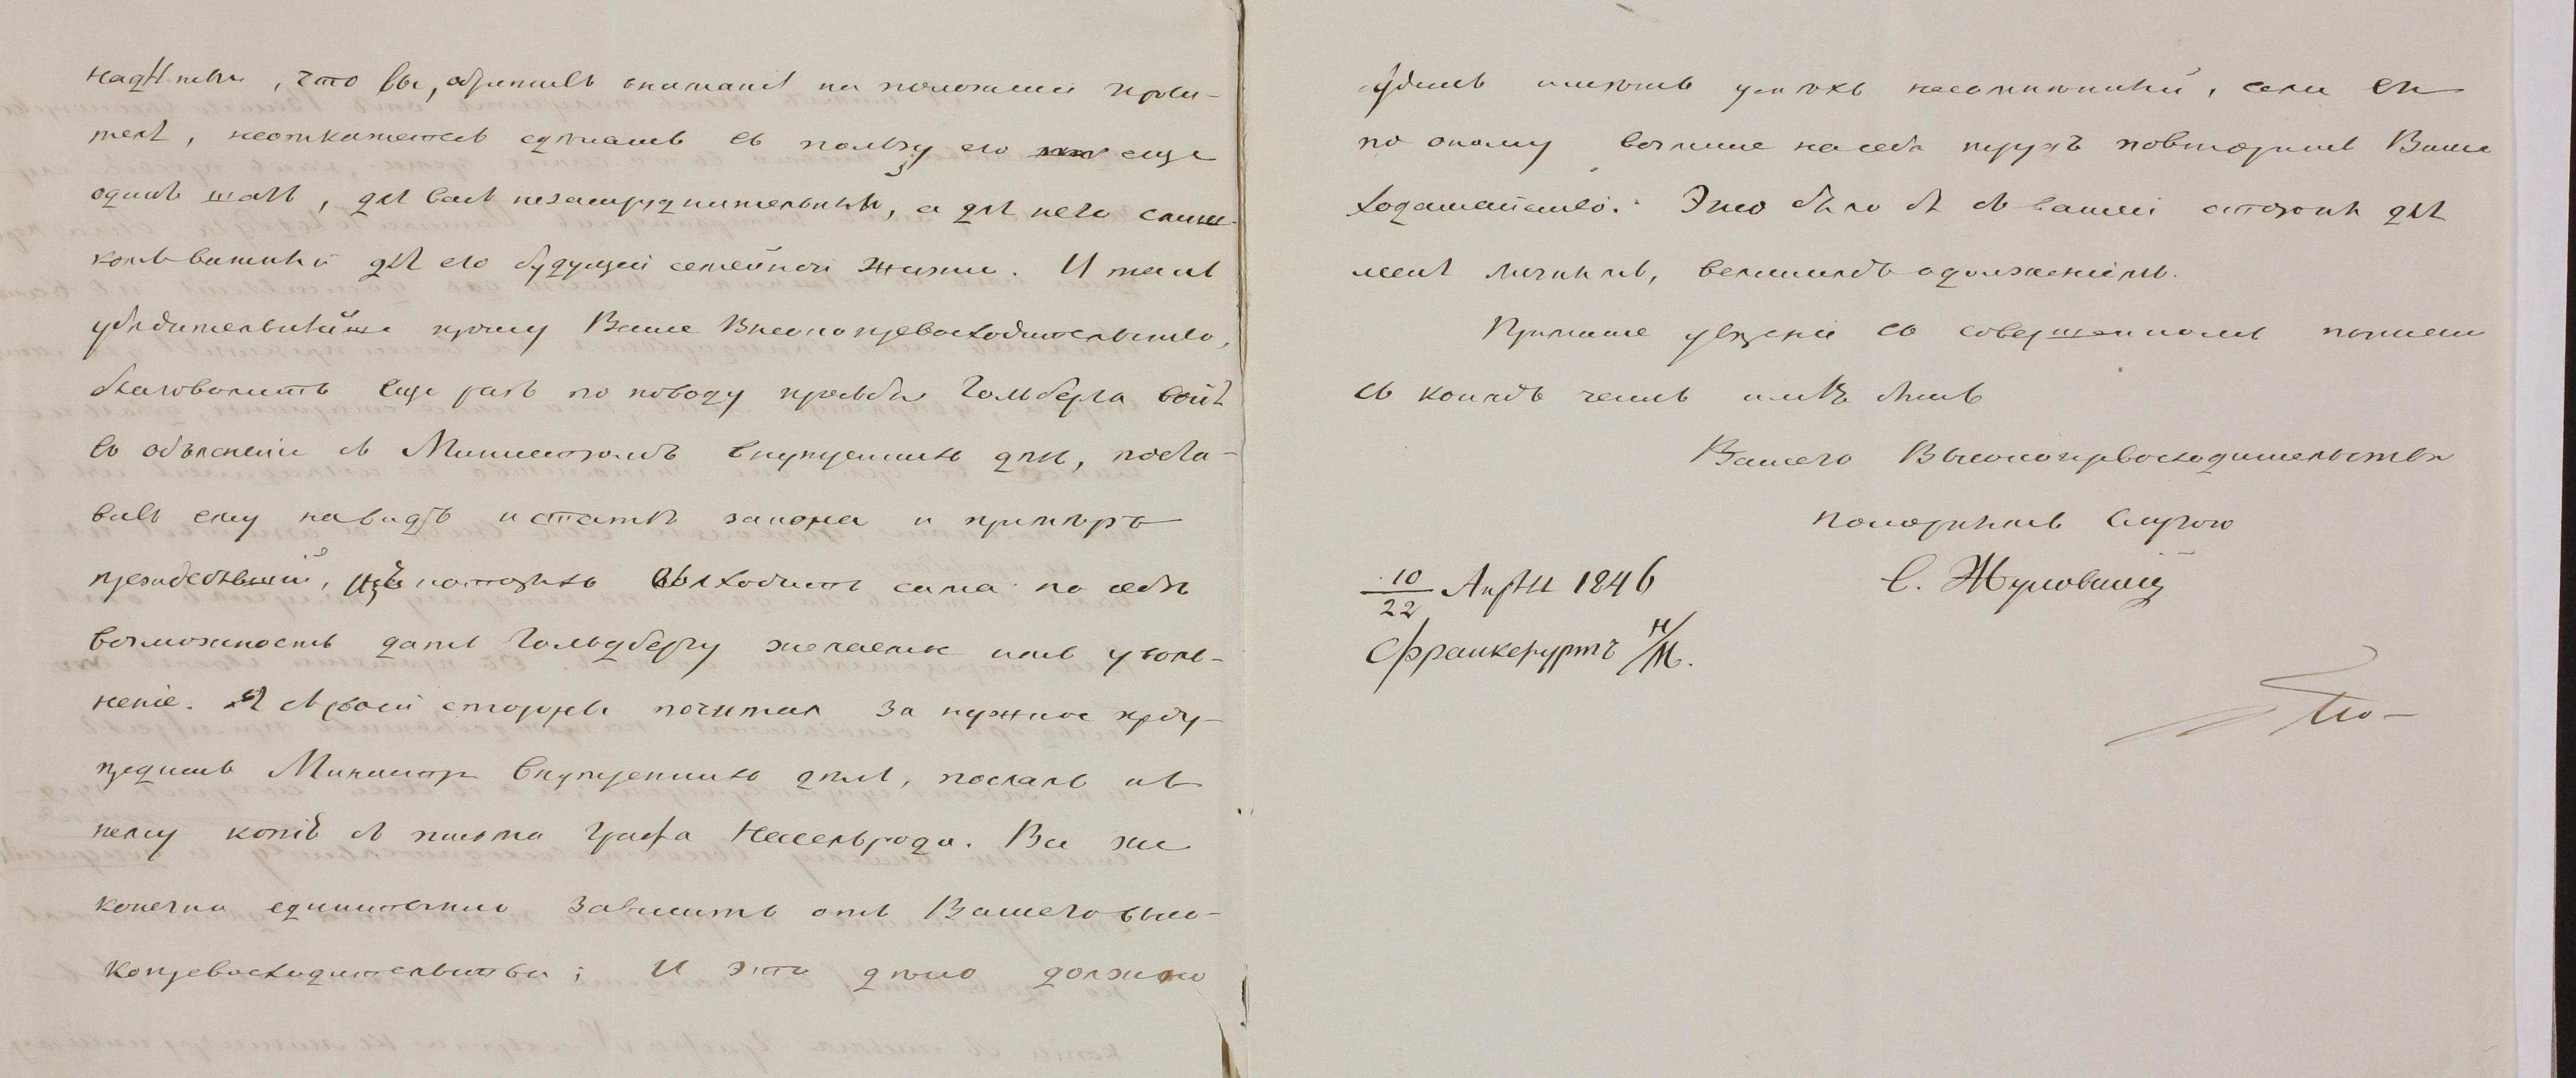 надѣясь, что вы, обративъ вниманіе на положеніе проси-
теля, неоткажетесь сдѣлать въ пользу его еще
одинъ шагъ, для васъ незатруднительный, а для него слиш-
комъ важный для его будущей семейной жизни. И такъ
убѣдительнѣйше прошу Ваше Высокопревосходительство,
благоволить еще разъ по поводу просьбы Гольдберга войти
въ объясненіе съ Министромъ внутреннихъ дѣлъ, поста-
вивъ ему навидъ и статьи закона и примѣръ
предшествій, изъ которыхъ выходитъ сама по себѣ
возможность дать Гольдбергу желаемое имъ уволь-
неніе. Я съ своей стороны почиталъ за нужное преду-
предить Министра внутреннихъ дѣлъ, пославъ къ
нему копію съ письма графа Нессельроде. Все же
конечно единственно зависитъ отъ Вашего высо-
копревосходительства; и это дѣло должно
будетъ имѣть успѣхъ несомнѣнный, если вы
по оному возмете на себя трудъ повторить Ваше
ходатайство. Это было бы съ вашей стороны для
меня личнымъ, великимъ одолженіемъ.
Примите увѣреніе въ совершенномъ почтеніи
съ коимъ честь имѣю быть
Вашего Высокопревосходительства
покорнымъ слугою
10/22 Апрѣля 1846 С. Жуковскій
Франкфуртъ н/М.